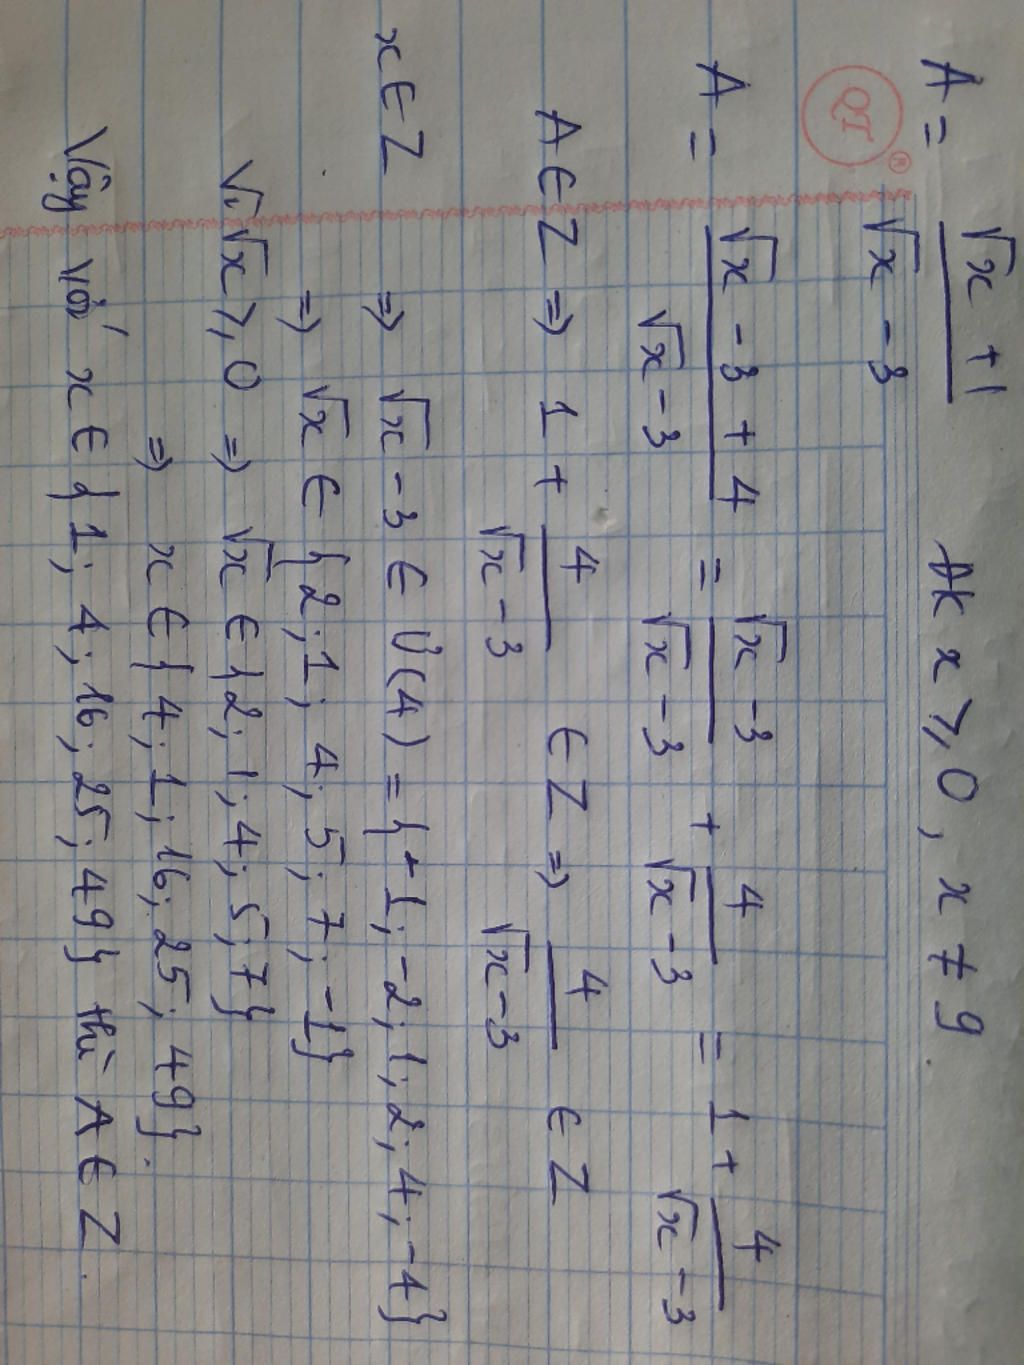 A = (√x + 1)/(√x - 3) Đk x ≥ 0, x ≠ 9.
QT ®
A = (√x - 3 + 4)/(√x - 3) = (√x - 3)/(√x - 3) + 4/(√x - 3) = 1 + 4/(√x - 3)
A ∈ Z ⇒ 1 + 4/(√x - 3) ∈ Z ⇒ 4/(√x - 3) ∈ Z
x ∈ Z ⇒ √x - 3 ∈ Ư(4) = { -1; -2; 1; 2; 4; -4}
⇒ √x ∈ { 2; 1; 4; 5; 7; -1}
Vì √x ≥ 0 ⇒ √x ∈ { 2; 1; 4; 5; 7}
⇒ x ∈ { 4; 1; 16; 25; 49}.
Vậy với x ∈ { 1; 4; 16; 25; 49} thì A ∈ Z.